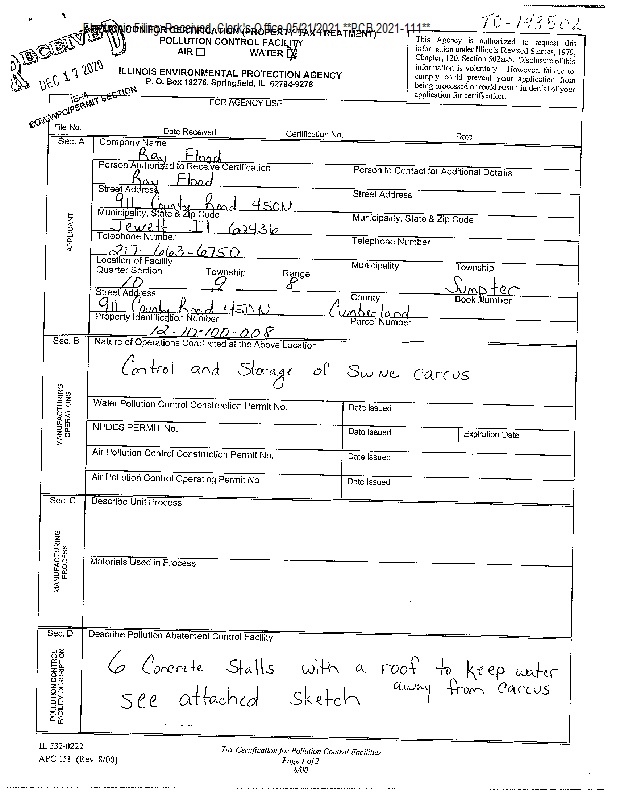 Electronic Filing: Received, Clerk's Office 05/21/2021 **PCB 2021-111**
TC-193502
APPLICATION FOR CERTIFICATION (PROPERTY TAX TREATMENT)
POLLUTION CONTROL FACILITY
AIR WATER
ILLINOIS ENVIRONMENTAL PROTECTION AGENCY
P. O. Box 19276, Springfield, IL 62794-9276
This Agency is authorized to request this
information under Illinois Revised Statutes, 1979,
Chapter, 120, Section 502a-5. Disclosure of this
information is voluntary. However, failure to
comply could prevent your application from
being processed or could result in denial of your
application for certification.
RECEIVED
DEC 17 2020
IEPA
BOW/WPC/PERMIT SECTION
FOR AGENCY USE
File No. Date Received Certification No. Date
Sec. A Company Name
Ray Flood
Person Authorized to Receive Certification Person to Contact for Additional Details
Ray Flood
Street Address Street Address
911 County Road 450N
Municipality, State & Zip Code Municipality, State & Zip Code
Jewett Il 62436
Telephone Number Telephone Number
217-663-6750
APPLICANT
Location of Facility Municipality Township
Quarter Section Township Range
10 9 8 Sumpter
Street Address County Book Number
911 County Road 450N Cumberland
Property Identification Number Parcel Number
12-10-100-008
Sec. B Nature of Operations Conducted at the Above Location
Control and Storage of Swine Carcus
MANUFACTURING OPERATIONS
Water Pollution Control Construction Permit No. Date Issued
NPDES PERMIT No. Date Issued Expiration Date
Air Pollution Control Construction Permit No. Date Issued
Air Pollution Control Operating Permit No. Date Issued
Sec. C Describe Unit Process
MANUFACTURING PROCESS
Materials Used in Process
Sec. D Describe Pollution Abatement Control Facility
POLLUTION CONTROL FACILITY DESCRIPTION
6 Concrete Stalls with a roof to keep water
away from carcus
See attached sketch
IL 532-0222
APC 151 (Rev. 8/00)
Tax Certification for Pollution Control Facilities
Page 1 of 2
8/00